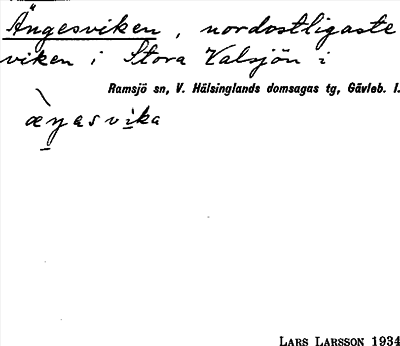 Ängesviken, nordostligaste
viken i Stora Valsjön i
Ramsjö sn, V. Hälsinglands domsagas tg, Gävleb. l.
æŋasvika
LARS LARSSON 1934